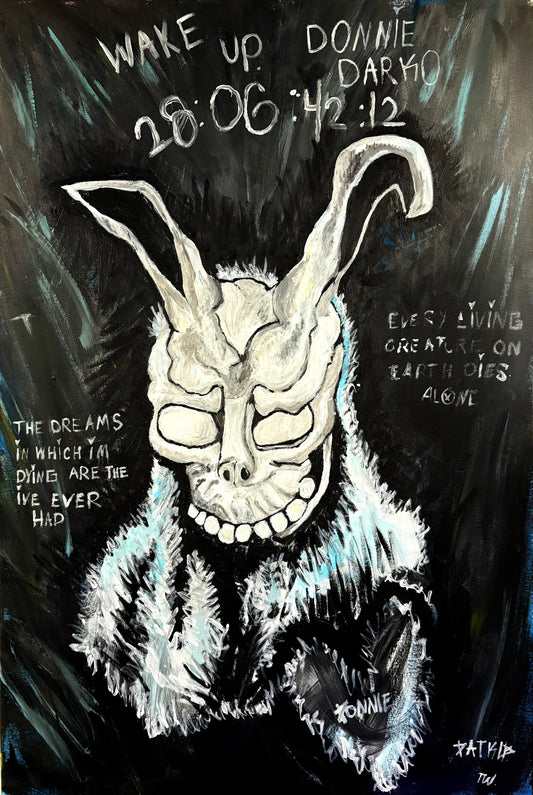 WAKE UP DONNIE
DARKO
28:06:42:12
EVERY LIVING
CREATURE ON
EARTH DIES
ALONE
THE DREAMS
IN WHICH IM
DYING ARE THE
IVE EVER
HAD
DONNIE
DATKIP
TW